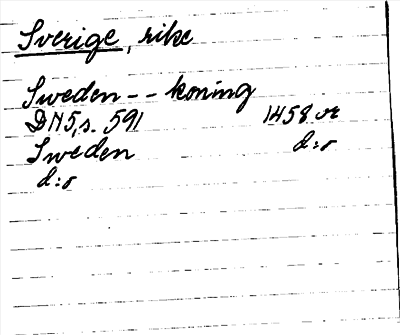 Sverige, rike
Sweden -- koning
DN5, s. 591 1458 or
Sweden d:o
d:o